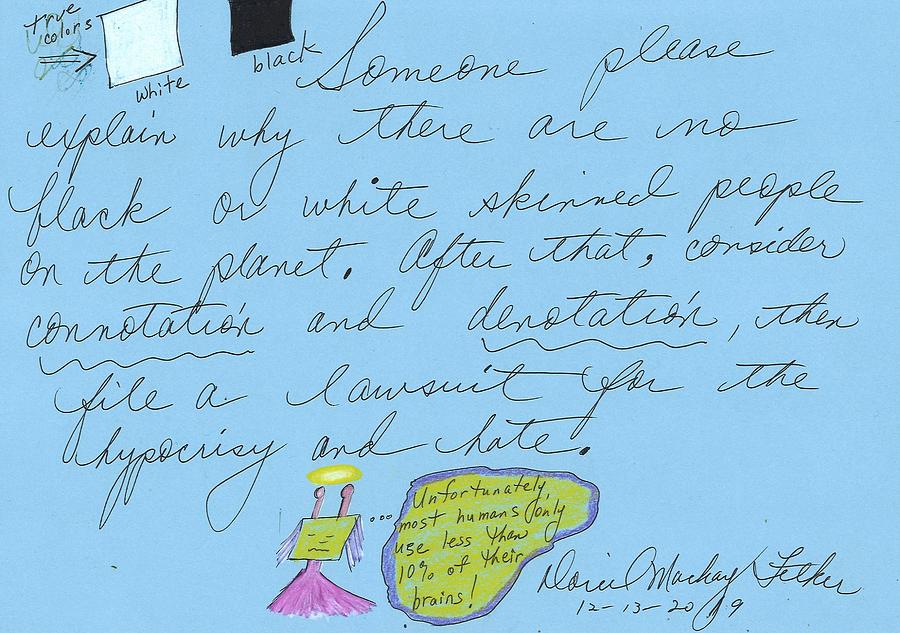 true
colors
white
black
Someone please
explain why there are no
black or white skinned people
on the planet. After that, consider
connotation and denotation, then
file a lawsuit for the
hypocrisy and hate.
Unfortunately,
most humans only
use less than
10% of their
brains!
Mackay Felker
12-13-2019